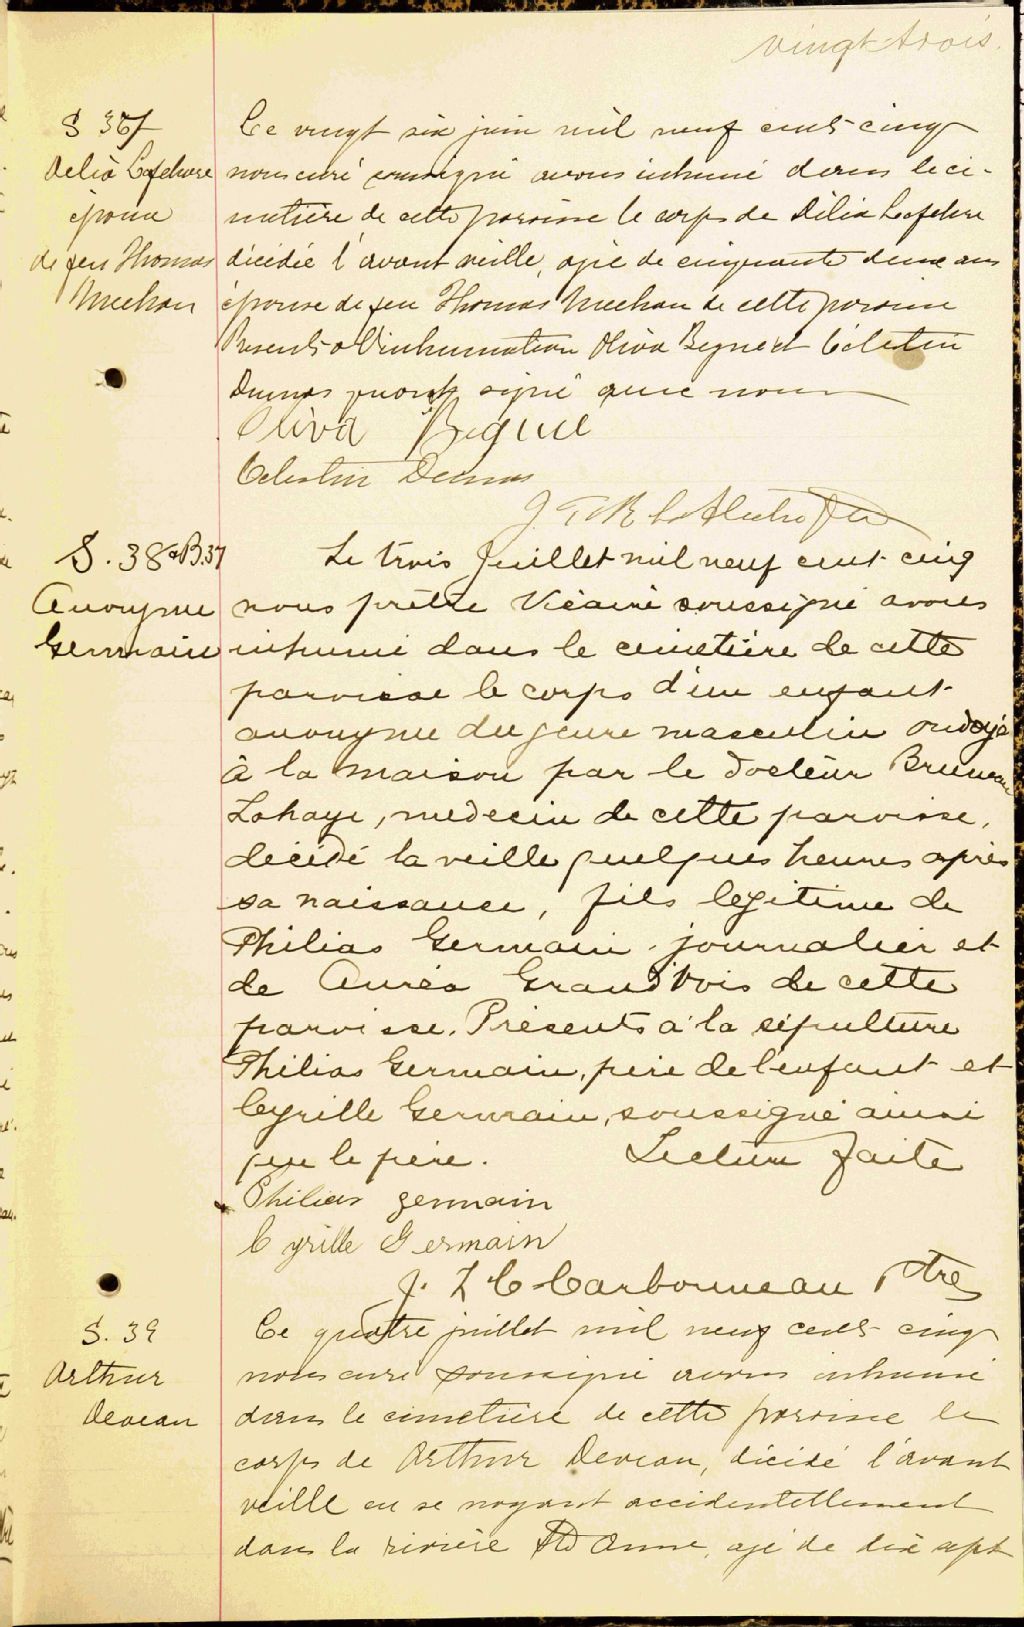 vingt trois.
S 37
Délia Lefebvre
épouse
de feu Thomas
Meehan
Ce vingt six juin mil neuf cent cinq
nous curé soussigné avons inhumé dans le ci-
metière de cette paroisse le corps de Délia Lefebvre
décédée l'avant veille, agée de cinquante deux ans
épouse de feu Thomas Meehan de cette paroisse
Présents à l'inhumation Oliva Begne et Célestin
Dumas qui ont signé avec nous
Oliva Begne
Celestin Dumas
S. 38 & B. 37
Anonyme
Germain
Le trois Juillet mil neuf cent cinq
nous prêtre Vicaire soussigné avons
inhumé dans le cimetière de cette
paroisse le corps d'un enfant
anonyme du genre masculin ondoyé
à la maison par le docteur Bruneau
Lahaye, medecin de cette paroisse,
décédé la veille quelques heures après
sa naissance, fils legitime de
Philias Germain, journalier et
de Auréa Grand'bois de cette
paroisse. Présents à la sépulture
Philias Germain, père de l'enfant et
Cyrille Germain, soussigné ainsi
que le père. Lecture faite
Philias germain
Cyrille Germain
J. L C Carbonneau Ptre
S. 39
Arthur
Deveau
Ce quatre juillet mil neuf cent cinq
nous curé soussigné avons inhumé
dans le cimetière de cette paroisse le
corps de Arthur Deveau, décédé l'avant
veille en se noyant accidentellement
dans la rivière Ste Anne, agé de dix sept